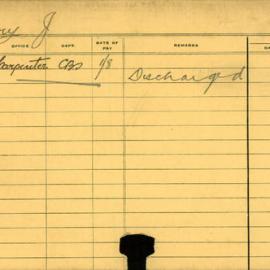 J
OFFICE. DEPT. DATE OF PAY REMARKS DA
Carpenter CBS 1/8 Discharged